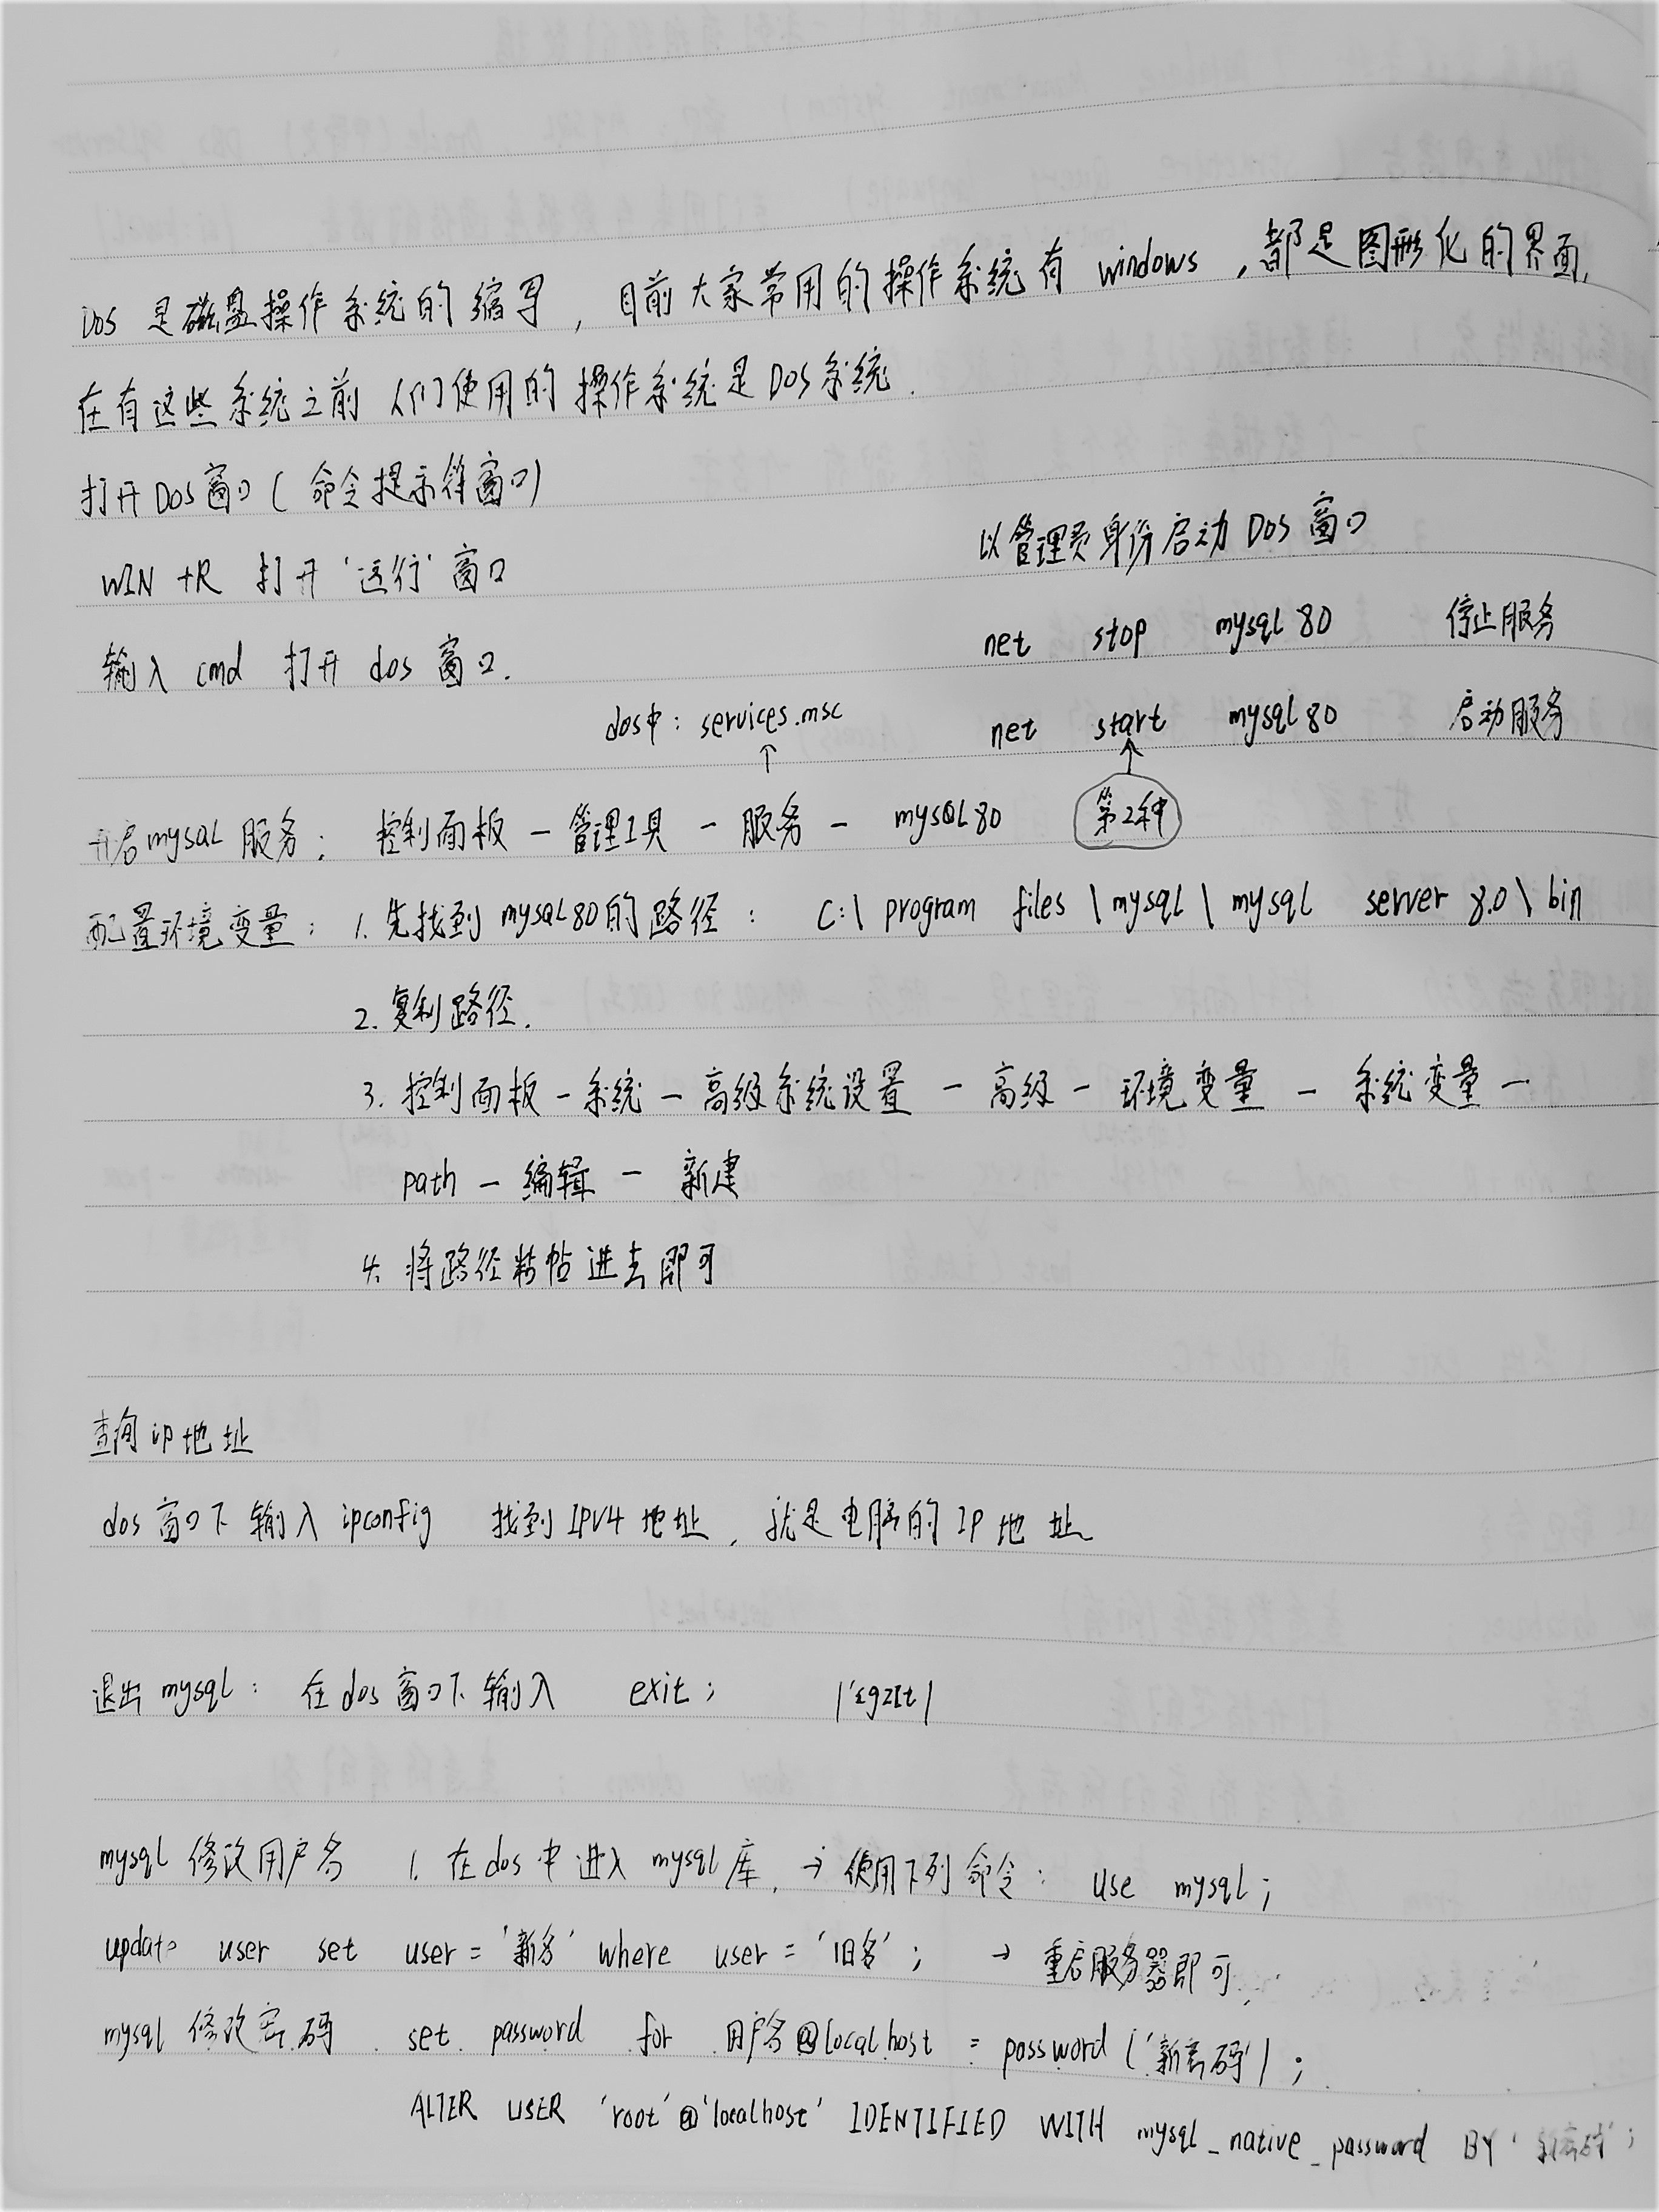 DOS 是磁盘操作系统的缩写，目前大家常用的操作系统有 windows，都是图形化的界面，
在有这些系统之前 人们使用的 操作系统是 DOS 系统.
打开 DOS 窗口 ( 命令提示符窗口)
WIN +R 打开 '运行' 窗口
输入 cmd 打开 dos 窗口.
以管理员身份启动 DOS 窗口
net stop mysql 80 停止服务
net start mysql 80 启动服务
dos中: services.msc
↑
↑
第2种
开启 mysql 服务: 控制面板 - 管理工具 - 服务 - mySQL 80
配置环境变量: 1. 先找到 mysql80 的路径: C:\ program files \ mysql \ mysql server 8.0 \ bin
2. 复制路径.
3. 控制面板 - 系统 - 高级系统设置 - 高级 - 环境变量 - 系统变量 -
path - 编辑 - 新建
4. 将路径粘帖进去即可
查询 ip 地址
dos 窗口下 输入 ipconfig 找到 IPV4 地址, 就是电脑的 IP 地址
退出 mysql: 在 dos 窗口下 输入 exit;
mysql 修改用户名 1. 在 dos 中 进入 mysql 库. → 使用下列命令: use mysql;
update user set user = '新名' where user = '旧名'; → 重启服务器即可,
mysql 修改密码 set password for 用户名@localhost = password ('新密码');
ALTER USER 'root'@'localhost' IDENTIFIED WITH mysql_native_password BY '新密码';